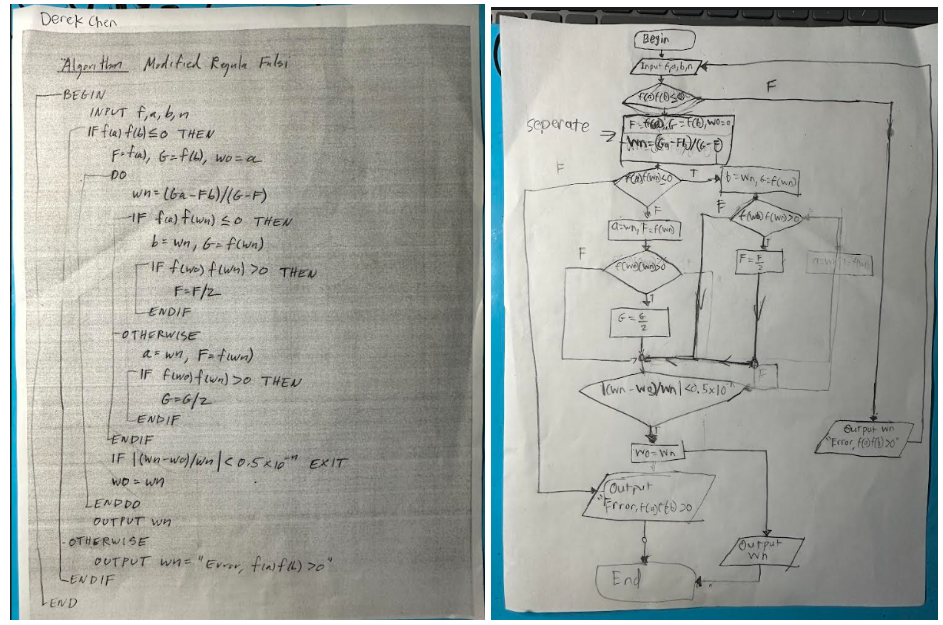 Derek Chen
Algorithm Modified Regula Falsi
BEGIN
INPUT f, a, b, n
IF f(a) f(b) ≤ 0 THEN
F = f(a), G = f(b), wo = a
DO
wn = (Ga - Fb)/(G - F)
IF f(a) f(wn) ≤ 0 THEN
b = wn, G = f(wn)
IF f(wo) f(wn) > 0 THEN
F = F/2
ENDIF
OTHERWISE
a = wn, F = f(wn)
IF f(wo) f(wn) > 0 THEN
G = G/2
ENDIF
ENDIF
IF |(wn-wo)/wn| < 0.5×10⁻ⁿ EXIT
wo = wn
ENDDO
OUTPUT wn
OTHERWISE
OUTPUT wn = "Error, f(a) f(b) > 0"
ENDIF
END
Begin
Input f, a, b, n
F
f(a)f(b)≤0
seperate
G = f(b), wo = a
wn = (Ga - Fb)/(G - F)
F
f(a)f(wn)≤0
T
b = wn, G = f(wn)
F
F
f(wo)f(wn)>0
a = wn, F = f(wn)
T
F = F/2
F
f(wo)(wn)>0
T
G = G/2
F
|(wn - wo)/wn| < 0.5×10⁻ⁿ
wo = wn
Output wn
"Error, f(a)f(b)>0"
Output
"Error, f(a)f(b)>0
Output
wn
End